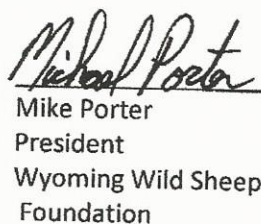 Michael Porter
Mike Porter
President
Wyoming Wild Sheep
Foundation